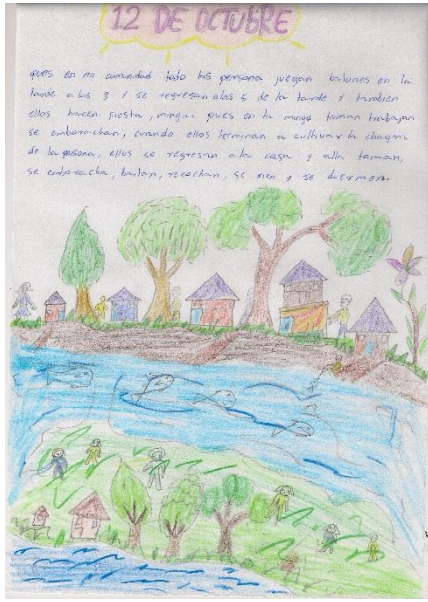 12 DE OCTUBRE
pues en mi comunidad todo las persona juegan balones en la
tarde a las 3 y se regresan alas 5 de la tarde y tambien
ellos hacen fiesta, minga. pues en la minga toman trabajan
se emborachan, cuando ellos terminan a cultivar la chagra
de la persona, ellos se regresan a la casa y alla toman,
se emboracha, bailan, recochan, se rien y se duermen.